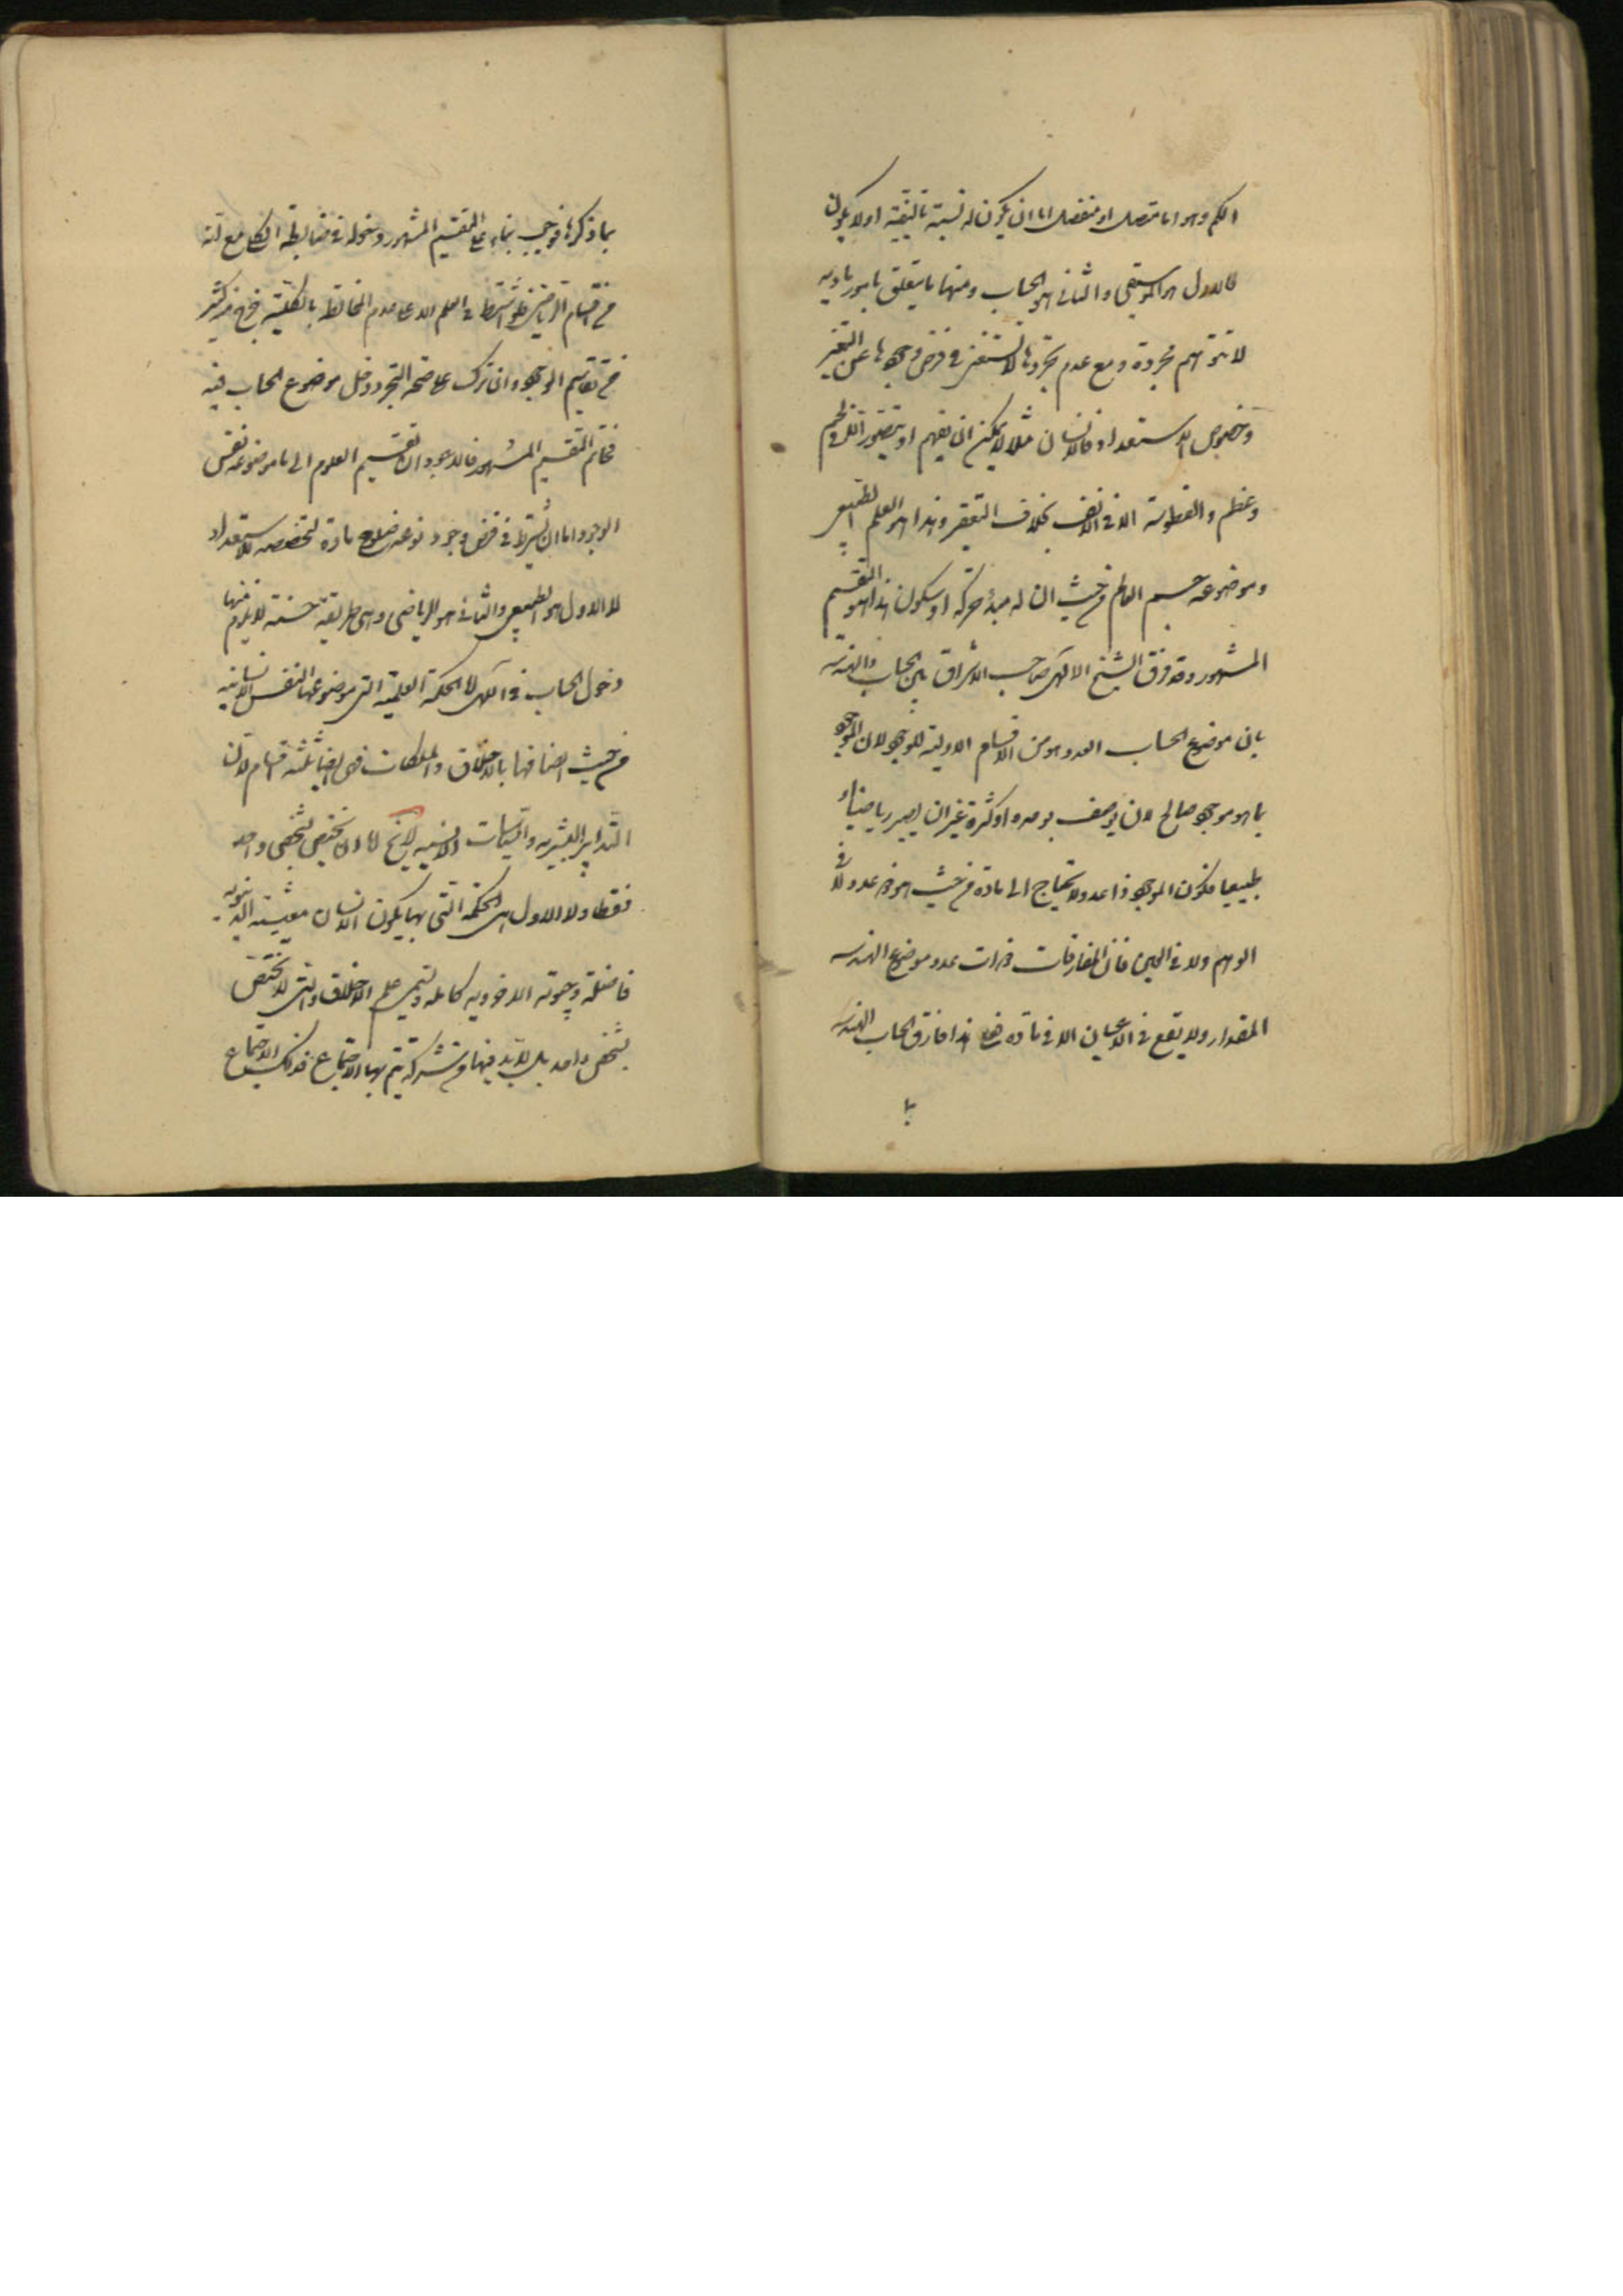 الكم وهو اما متصل او منفصل اما ان يكون له نسبة تاليفية او لا يكون
فالاول هو الموسيقى والثانى هو الحساب ومنها ما يتعلق بامور مادية
لا تتوهم مجردة ومع عدم تجردها لا تستغنى فى فرض وجودها عن التغير
وخصوص الاستعداد فالانسان مثلا لا يمكن ان يفهم او يتصور الا فى لحم
وعظم والفطوسة الا فى الانف بخلاف التقعير وهذا هو العلم الطبيعى
وموضوعه جسم العالم من حيث ان له مبدء حركة او سكون هذا هو التقسيم
المشهور وقد فرق الشيخ الالهى صاحب الاشراق بين الحساب والهندسه
بان موضوع الحساب العدد وهو من الاقسام الاولية للوجود لان الموجود
بما هو موجود صالح لان يوصف بوحدة او كثرة غير ان يصير رياضيا او
طبيعيا فكون الموجود ذا عدد لا يحتاج الى مادة من حيث هو ذو عدد لا فى
الوهم ولا فى العين فان المفارقات ذوات عدد وموضوع الهندسه
المقدار ولا يقع فى الاعيان الا فى مادة هذا فارق الحساب الهندسه
بما ذكرها فوجب بناء على التقسيم المشهور دخوله فى ضابطة مع انه
من اقسام الرياضى فلو اشترط فى العلم الاعلى عدم المخالطة بالكلية فخرج منه كثير
من تقاسيم الوجود وان ترك على صحة التجرد دخل موضوع الحساب فيه
التقسيم المشهور فالاجود ان تقسيم العلوم الى ما موضوعه نفس
الوجود اما ان يشترط فى فرض وجود نوعه صلوح مادة لتخصصه للاستعداد
لا الاول هو الطبيعى والثانى هو الرياضى وهى طريقة حسنة لا يلزم منها
دخول الحساب فى الالهى اما الحكمة العملية التى موضوعها النفس الانسانيه
من حيث اتصافها بالاخلاق والملكات فهى ايضا ثلثة اقسام لان
التدابير البشريه والسياسات الانسيه لا يخ اما ان يختص بشخص واحد
فقط او لا الاول هى الحكمة التى بها يكون الانسان معيشته الدنيويه
فاضلة وحيوته الاخرويه كاملة وتسمى علم الاخلاق والتى لا يختص
بشخص واحد بل لا بد فيها من شركة يتم بها الاجتماع فذلك الاجتماع